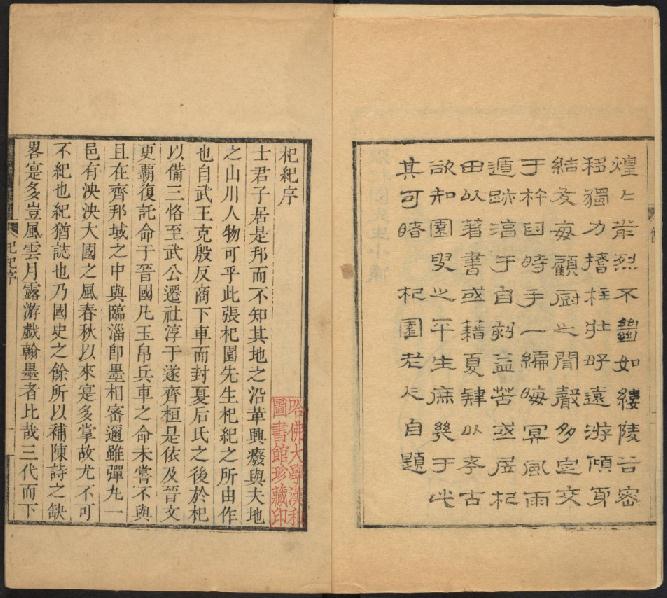 煌〻前烈不如縷陵谷密
移獨力撐柱壯好遠游傾身
結友每顧厨之間聲多定交
于杵臼時手一編晦冥風雨
遁跡淳于自刻益苦或居杞
田以著書或藉夏肄以考古
欲知園叟之平生庶幾于此
其可睹 杞園老人自題
杞紀序
士君子居是邦而不知其地之沿革興廢與夫地
之山川人物可乎此張杞園先生杞紀之所由作
也自武王克殷反商下車而封夏后氏之後於杞
以備三恪至武公遷社淳于遂齊桓是依及晉文
更霸復託命于晉國凡玉帛兵車之命未嘗不與
且在齊邦域之中與臨淄卽墨相密邇雖彈丸一
邑有泱泱大國之風春秋以來寔多掌故尤不可
不紀也紀猶誌也乃國史之餘所以補陳詩之缺
畧寔多豈風雲月露游戲翰墨者比哉三代而下
哈佛大學漢和
圖書館珍藏印